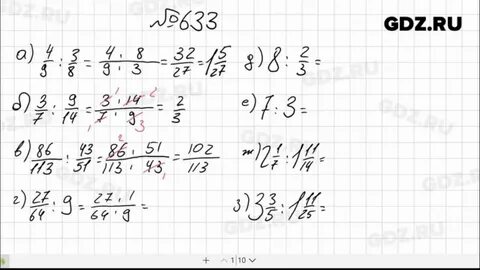 GDZ.RU
№633
а) 4/9 : 3/8 = 4 · 8 / 9 · 3 = 32/27 = 1 5/27
д) 8 : 2/3 =
б) 3/7 : 9/14 = 3 · 14 / 7 · 9 = 2/3
1 2 1 3
е) 7 : 3 =
в) 86/113 : 43/51 = 86 · 51 / 113 · 43 = 102/113
2 1
ж) 2 1/7 : 1 11/14 =
г) 27/64 : 9 = 27 · 1 / 64 · 9 =
з) 3 3/5 : 1 11/25 =
1 10